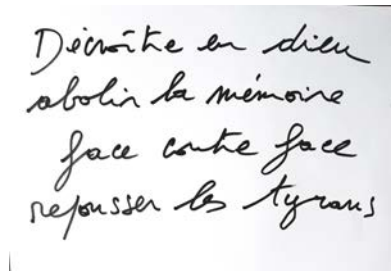 Décroître en dieu
abolir la mémoire
face contre face
repousser les tyrans